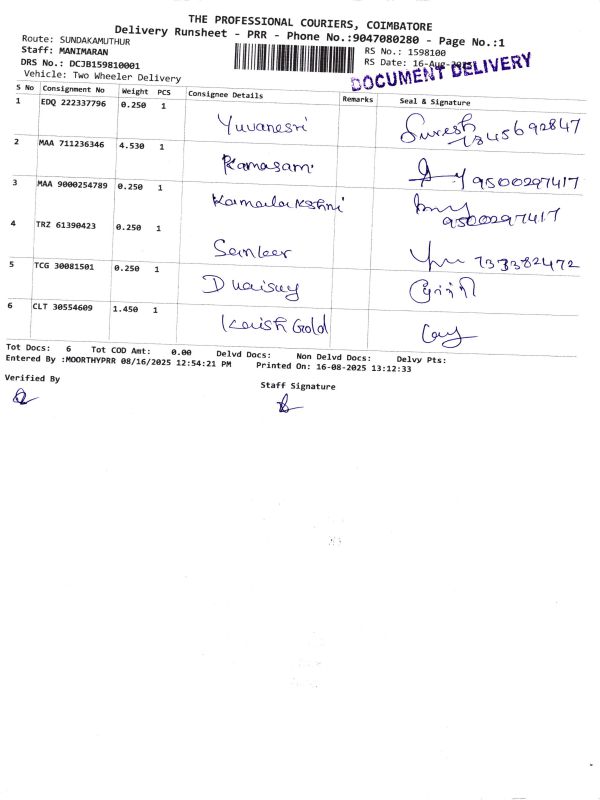 THE PROFESSIONAL COURIERS, COIMBATORE
Delivery Runsheet - PRR - Phone No.:9047080280 - Page No.:1
Route: SUNDAKAMUTHUR
Staff: MANIMARAN
DRS No.: DCJB159810001
Vehicle: Two Wheeler Delivery
RS No.: 1598100
RS Date: 16-Aug-2025
DOCUMENT DELIVERY
S No Consignment No Weight PCS Consignee Details Remarks Seal & Signature
1 EDQ 222337796 0.250 1 Yuvanesri Suresh 7845692847
2 MAA 711236346 4.530 1 Ramasami 9500297417
3 MAA 9000254789 0.250 1 Kamalakshni 9500297417
4 TRZ 61390423 0.250 1 733382472
5 TCG 30081501 0.250 1
6 CLT 30554609 1.450 1 Gold
Tot Docs: 6 Tot COD Amt: 0.00 Delvd Docs: Non Delvd Docs: Delvy Pts:
Entered By :MOORTHYPRR 08/16/2025 12:54:21 PM Printed On: 16-08-2025 13:12:33
Verified By
Staff Signature